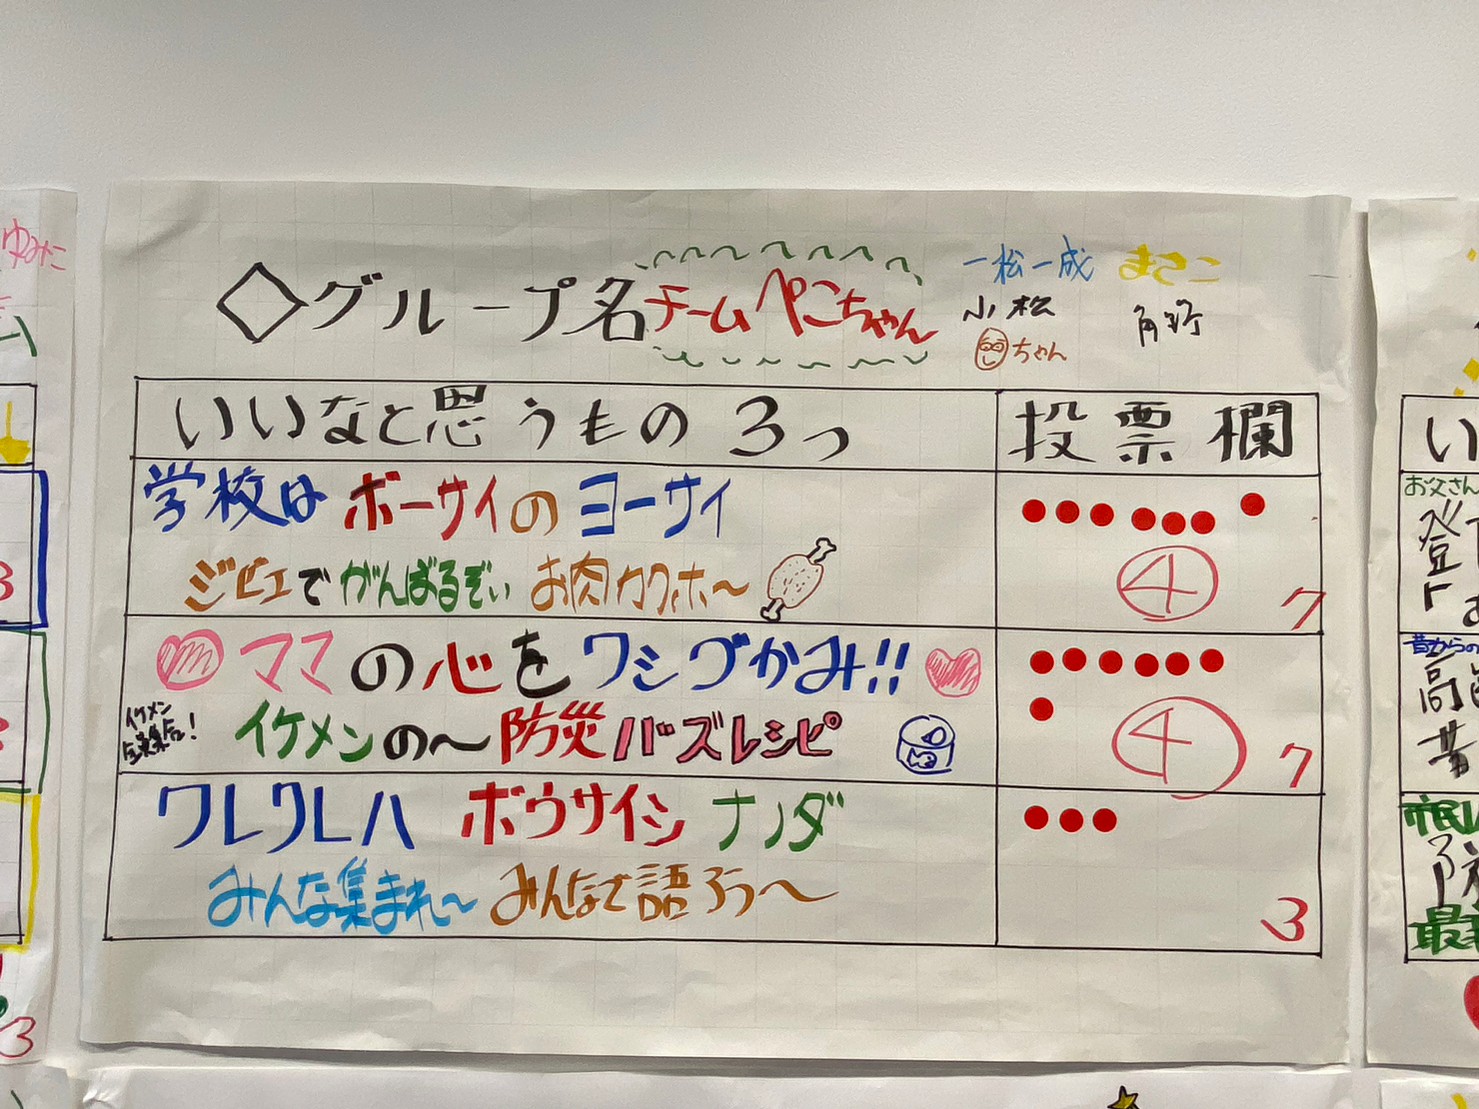 ◇グループ名 チームぺこちゃん
一松一成 まさこ
小松 角野
ちゃん
いいなと思うもの3つ 投票欄
学校はボーサイのヨーサイ
ジビエでがんばるぞぃ お肉カクホ〜
④ 7
ママの心をワシヅかみ!!
イケメン
全員集合!
イケメンの〜防災バズレシピ
④ 7
ワレワレハ ボウサイシ ナノダ
みんな集まれ〜 みんなで語ろう〜
3
ゆみこ
3
3
い
お父さん
登
昔からの
高齢
昔
市民
防
最新